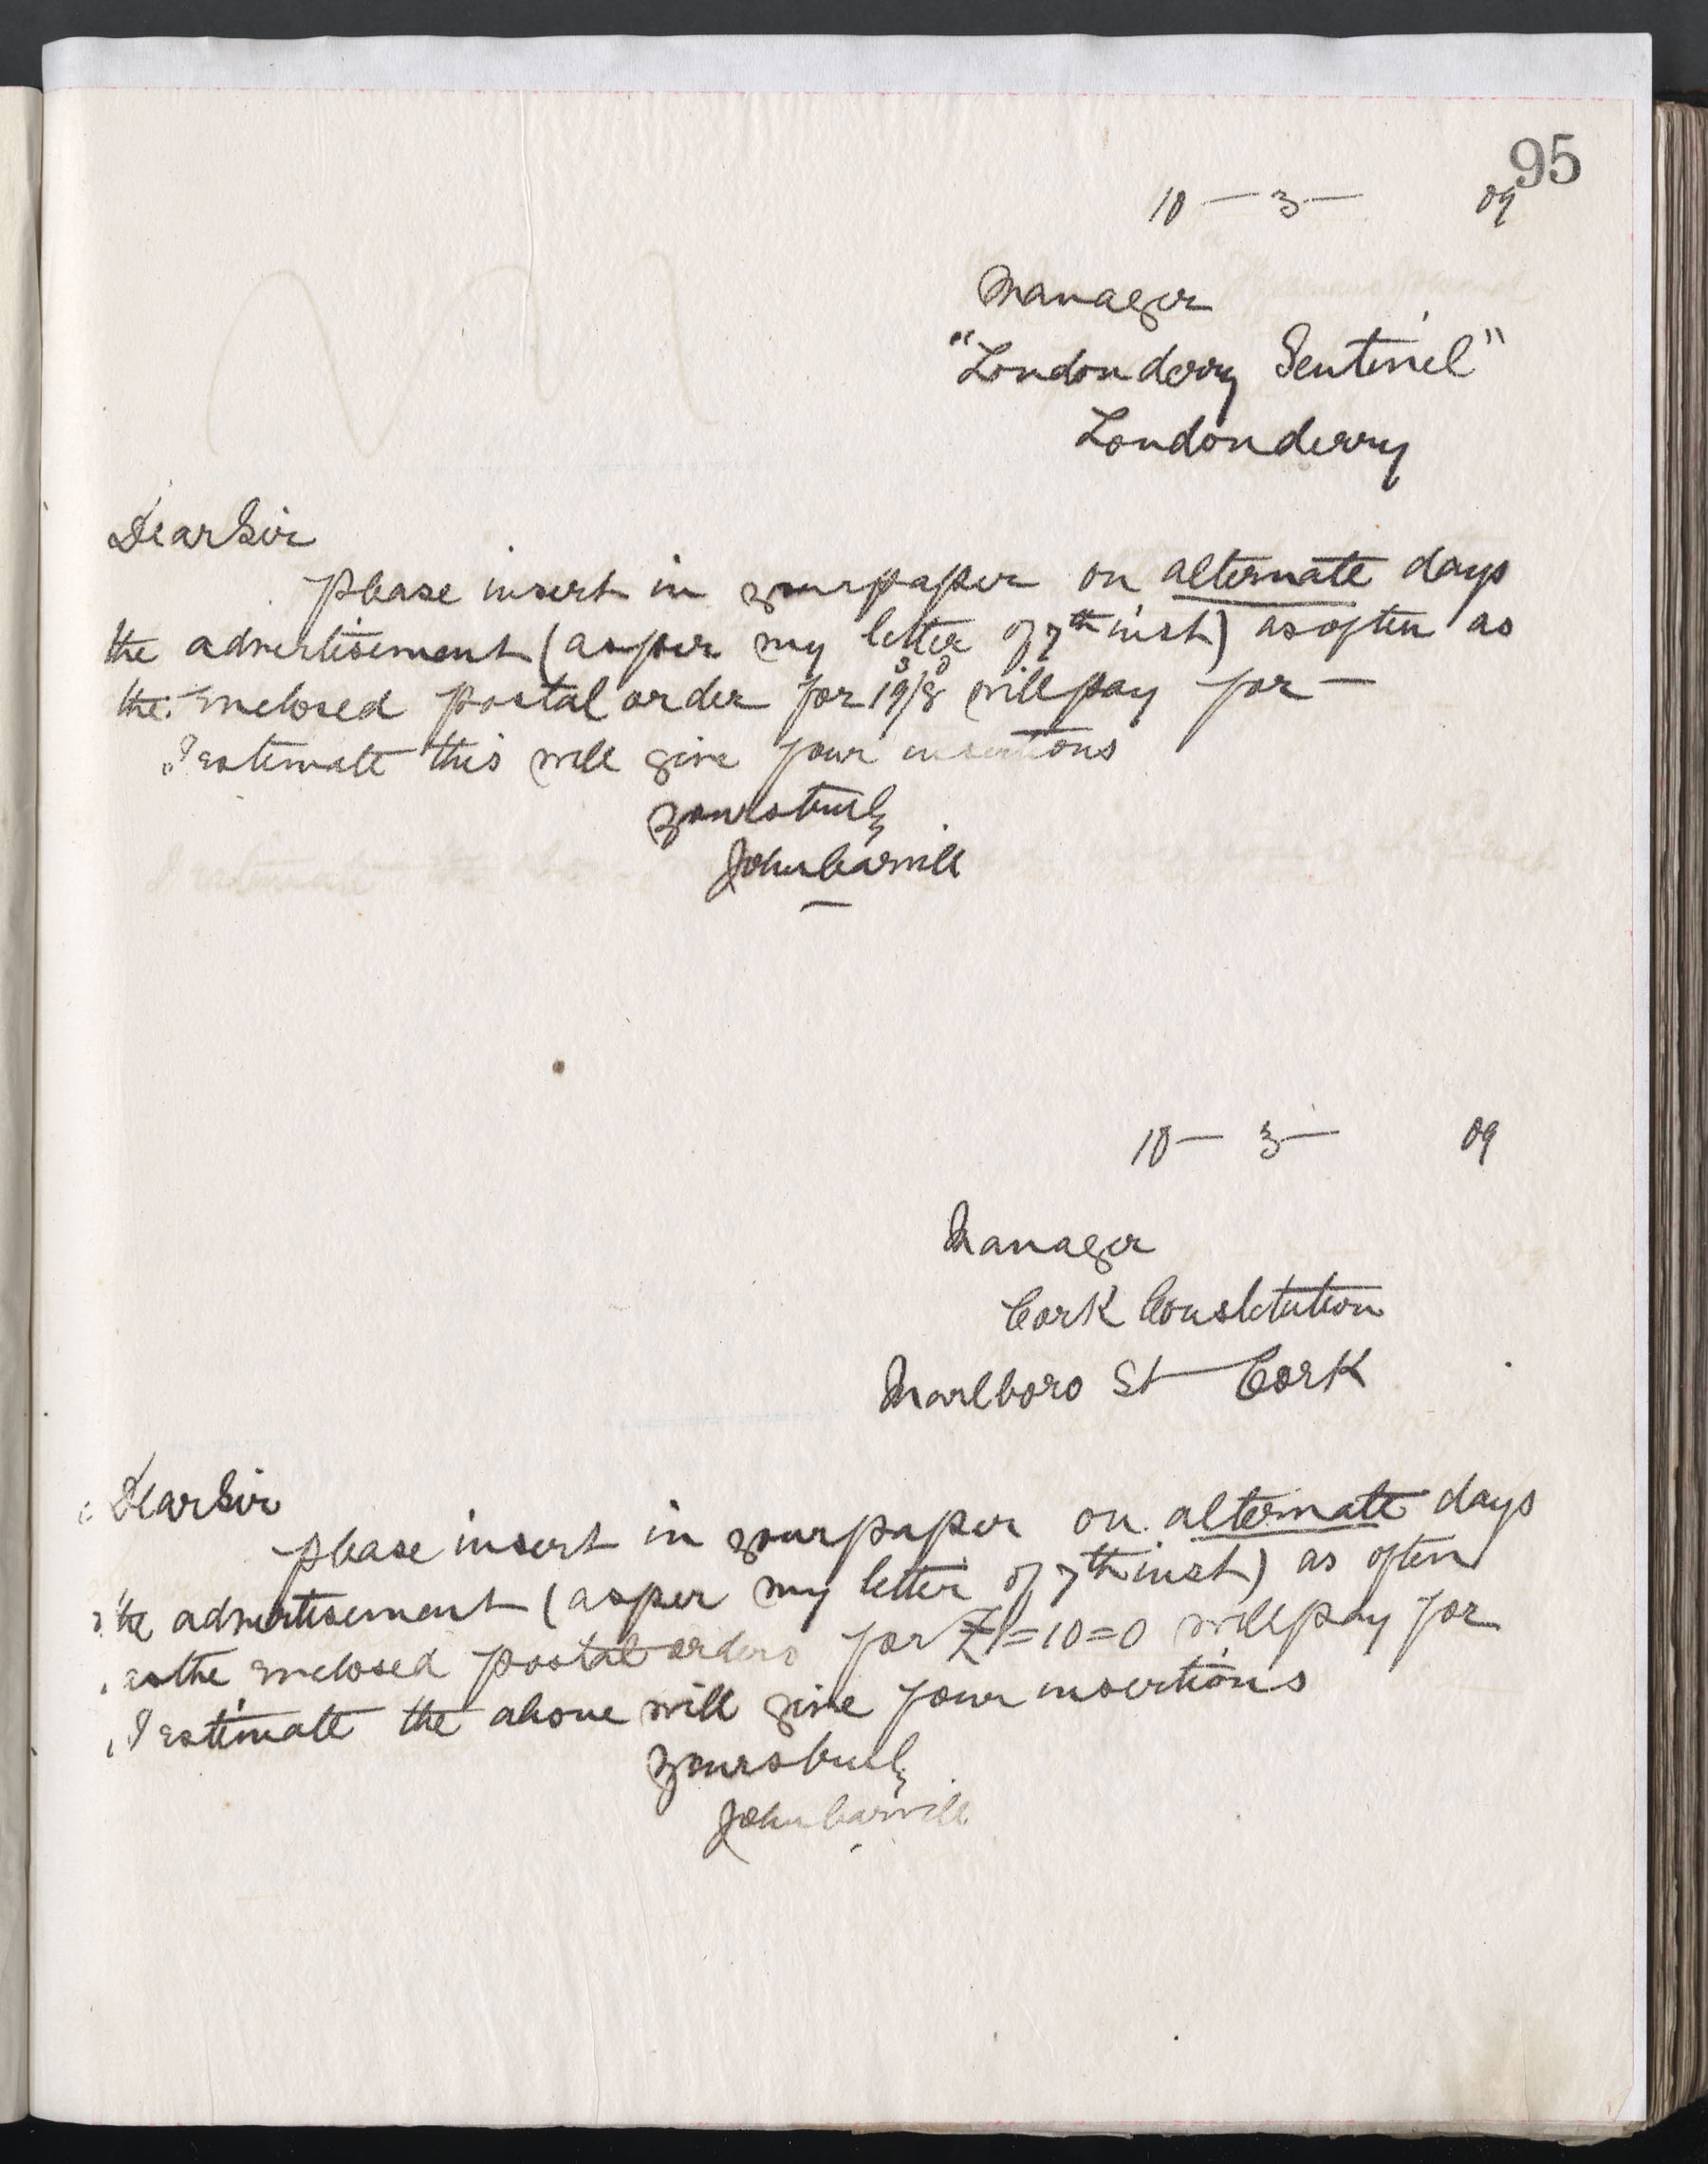 95
10 — 3 — 09
Manager
"Londonderry Sentinel"
Londonderry
Dear Sir
Please insert in your paper on alternate days
the advertisement (as per my letter of 7th inst) as often as
the enclosed postal order for 19/8 will pay for —
I estimate this will give four insertions
Yours truly
John Carvill
10 — 3 — 09
Manager
Cork Constitution
Marlboro St Cork
Dear Sir
Please insert in your paper on alternate days
the advertisement (as per my letter of 7th inst) as often
as the enclosed postal orders for £1=10=0 will pay for
I estimate the above will give four insertions
Yours truly
John Carvill